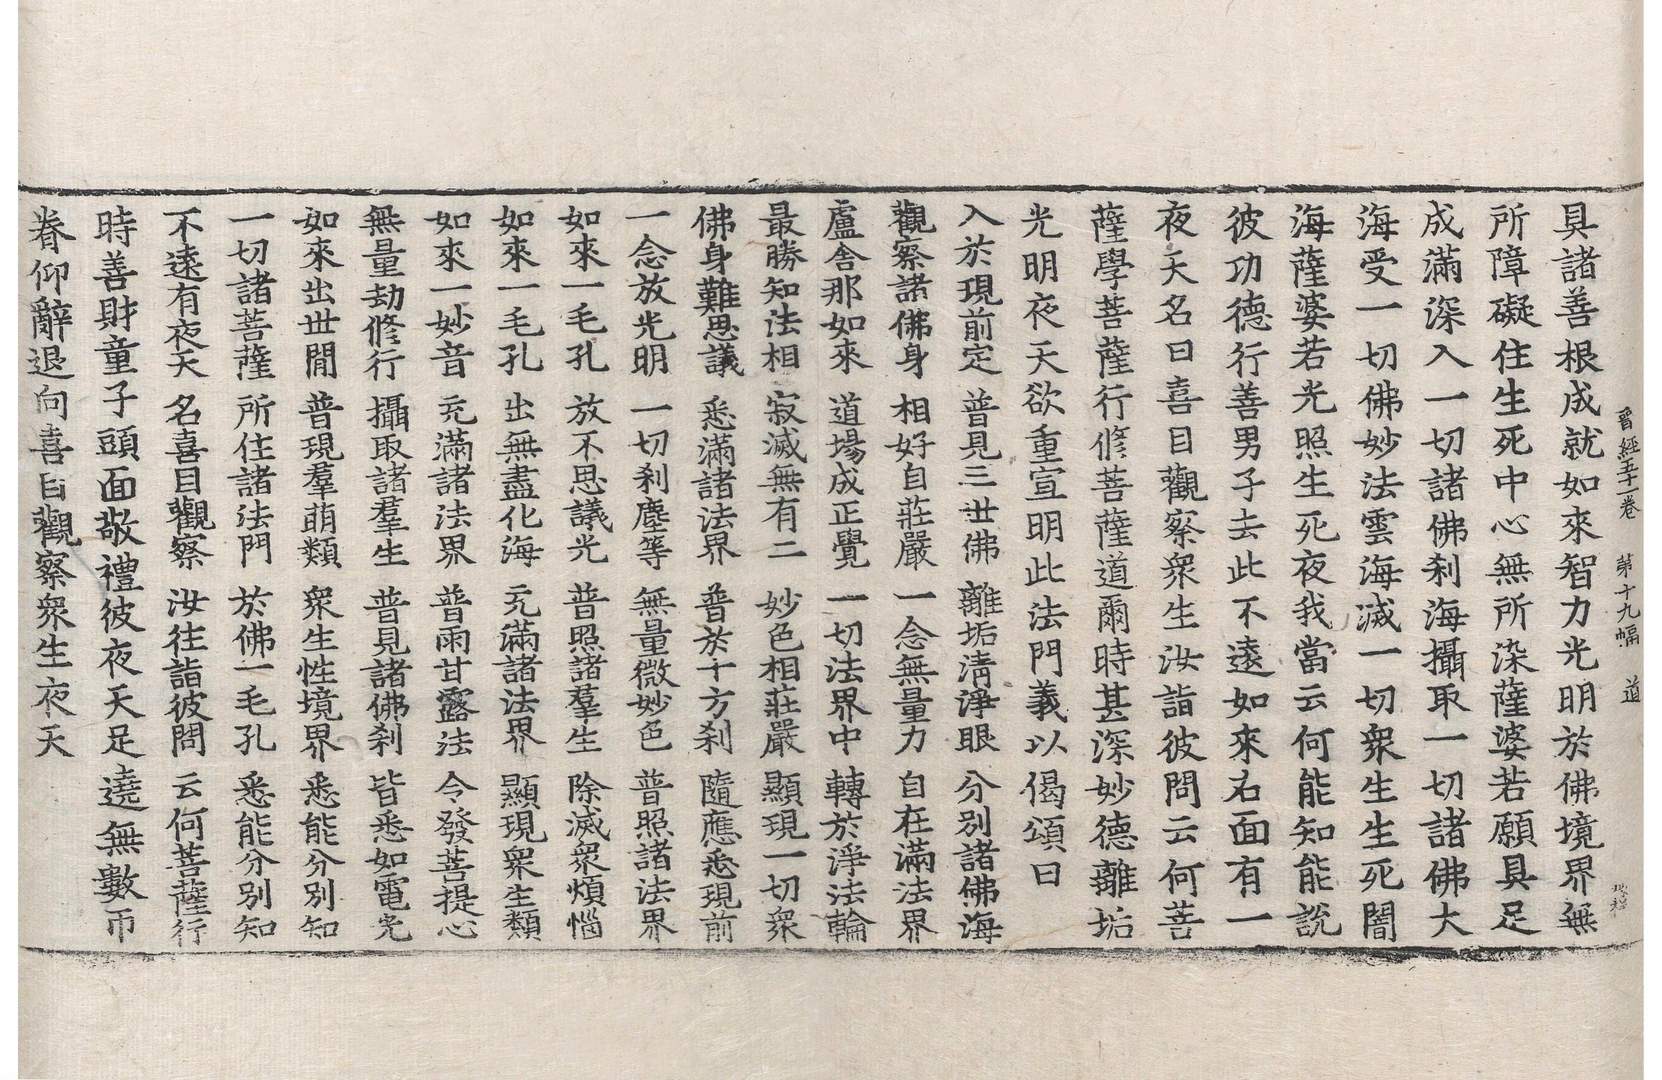 晉經五十一卷 第十九幅 道
具諸善根成就如來智力光明於佛境界無
所障礙住生死中心無所染薩婆若願具足
成滿深入一切諸佛刹海攝取一切諸佛大
海受一切佛妙法雲海滅一切衆生生死闇
海薩婆若光照生死夜我當云何能知能說
彼功德行善男子去此不遠如來右面有一
夜天名曰喜目觀察衆生汝詣彼問云何菩
薩學菩薩行修菩薩道爾時甚深妙德離垢
光明夜天欲重宣明此法門義以偈頌曰
入於現前定 普見三世佛 離垢清淨眼 分別諸佛海
觀察諸佛身 相好自莊嚴 一念無量力 自在滿法界
盧舍那如來 道場成正覺 一切法界中 轉於淨法輪
最勝知法相 寂滅無有二 妙色相莊嚴 顯現一切衆
佛身難思議 悉滿諸法界 普於十方刹 隨應悉現前
一念放光明 一切刹塵等 無量微妙色 普照諸法界
如來一毛孔 放不思議光 普照諸羣生 除滅衆煩惱
如來一毛孔 出無盡化海 充滿諸法界 顯現衆生類
如來一妙音 充滿諸法界 普雨甘露法 令發菩提心
無量劫修行 攝取諸羣生 普見諸佛刹 皆悉如電光
如來出世間 普現羣萌類 衆生性境界 悉能分別知
一切諸菩薩 所住諸法門 於佛一毛孔 悉能分別知
不遠有夜天 名喜目觀察 汝往詣彼問 云何菩薩行
時善財童子頭面敬禮彼夜天足遶無數帀
眷仰辭退向喜目觀察衆生夜天